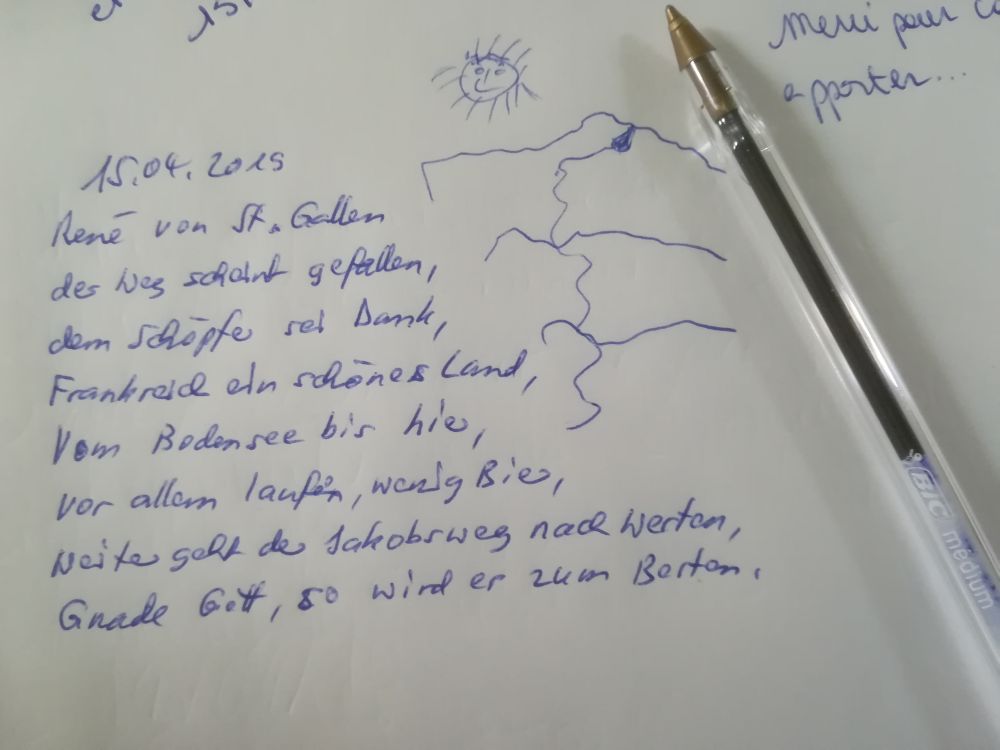 Merci pour
apporter...
15.04.2019
René von St. Gallen
der Weg scheint gefallen,
dem Schöpfer sei Dank,
Frankreich ein schönes Land,
Vom Bodensee bis hier,
vor allem laufen, wenig Bier,
Weiter geht der Jakobsweg nach Westen,
Gnade Gott, so wird er zum Besten.
BIC medium